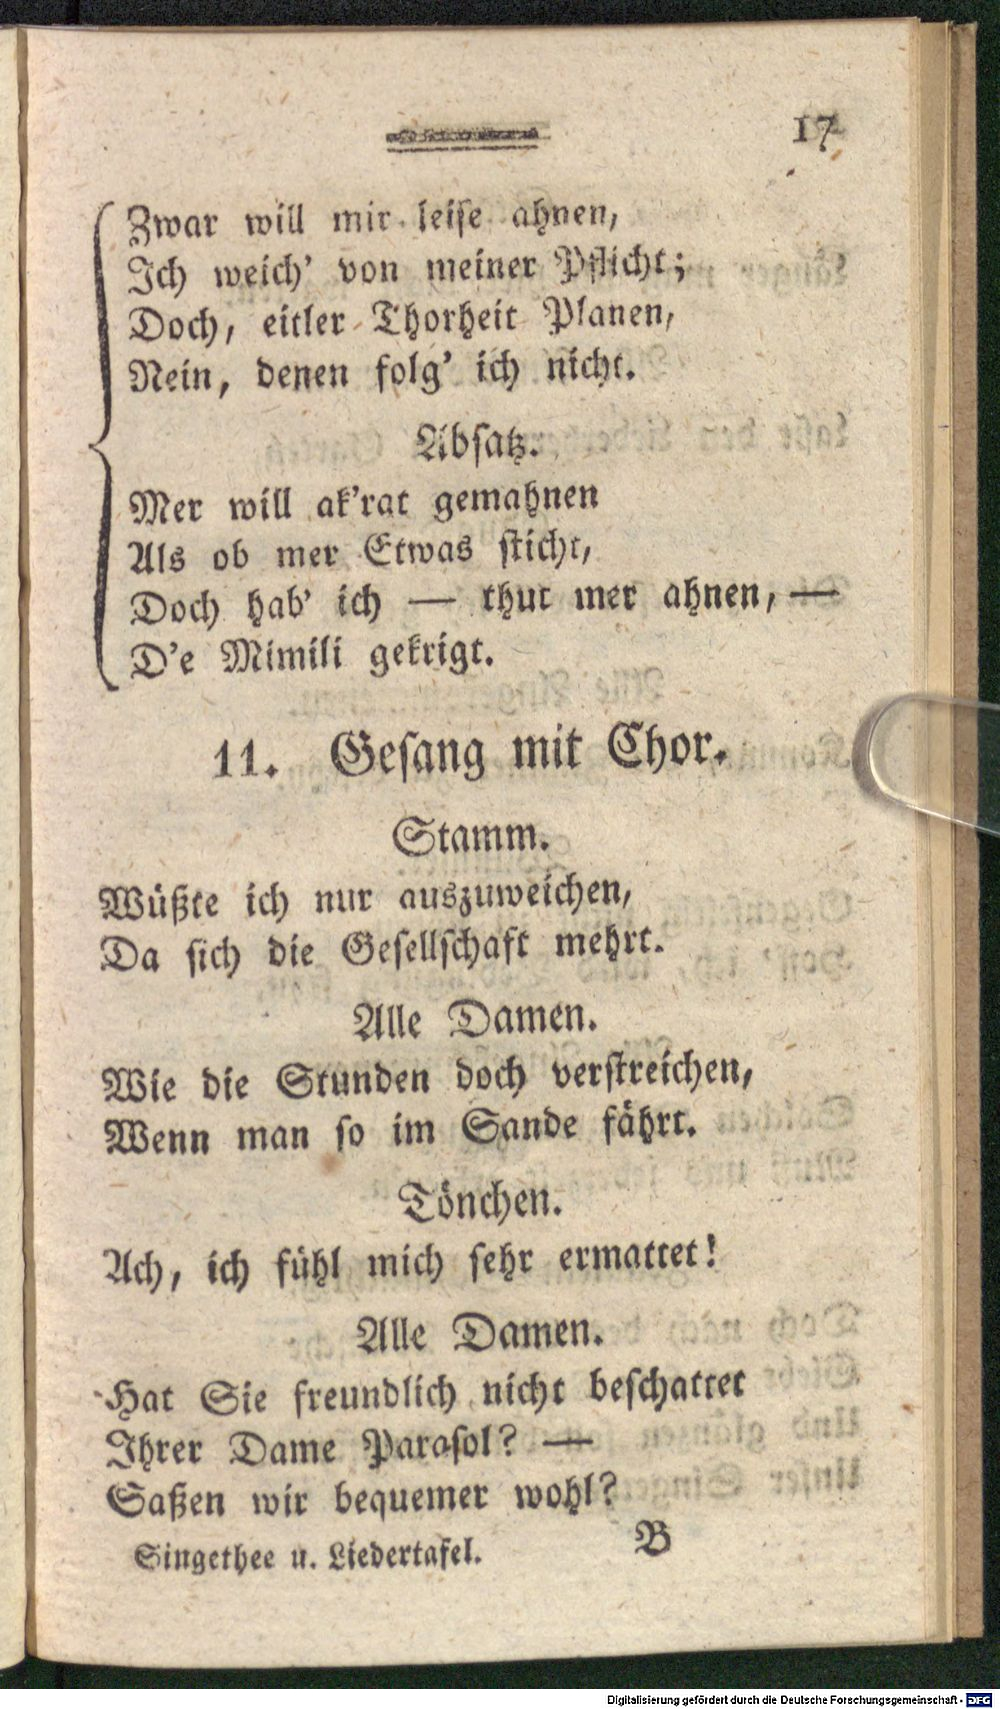 17
Zwar will mir leise ahnen,
Ich weich' von meiner Pflicht;
Doch, eitler Thorheit Planen,
Nein, denen folg' ich nicht.
Absatz.
Mer will ak'rat gemahnen
Als ob mer Etwas sticht,
Doch hab' ich — thut mer ahnen, —
D'e Mimili gekrigt.
11. Gesang mit Chor.
Stamm.
Wüßte ich nur auszuweichen,
Da sich die Gesellschaft mehrt.
Alle Damen.
Wie die Stunden doch verstreichen,
Wenn man so im Sande fährt.
Tönchen.
Ach, ich fühl mich sehr ermattet!
Alle Damen.
Hat Sie freundlich nicht beschattet
Ihrer Dame Parasol? —
Saßen wir bequemer wohl?
Singethee u. Liedertafel. B
Digitalisierung gefördert durch die Deutsche Forschungsgemeinschaft - DFG